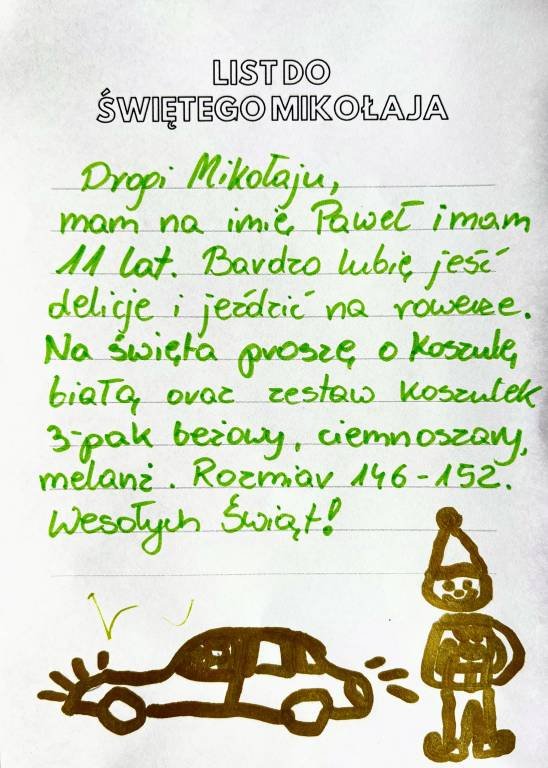 LIST DO
ŚWIĘTEGO MIKOŁAJA
Drogi Mikołaju,
mam na imię Paweł i mam
11 lat. Bardzo lubię jeść
delicje i jeździć na rowerze.
Na święta proszę o koszulę
białą oraz zestaw koszulek
3-pak beżowy, ciemnoszary,
melanż. Rozmiar 146-152.
Wesołych Świąt!